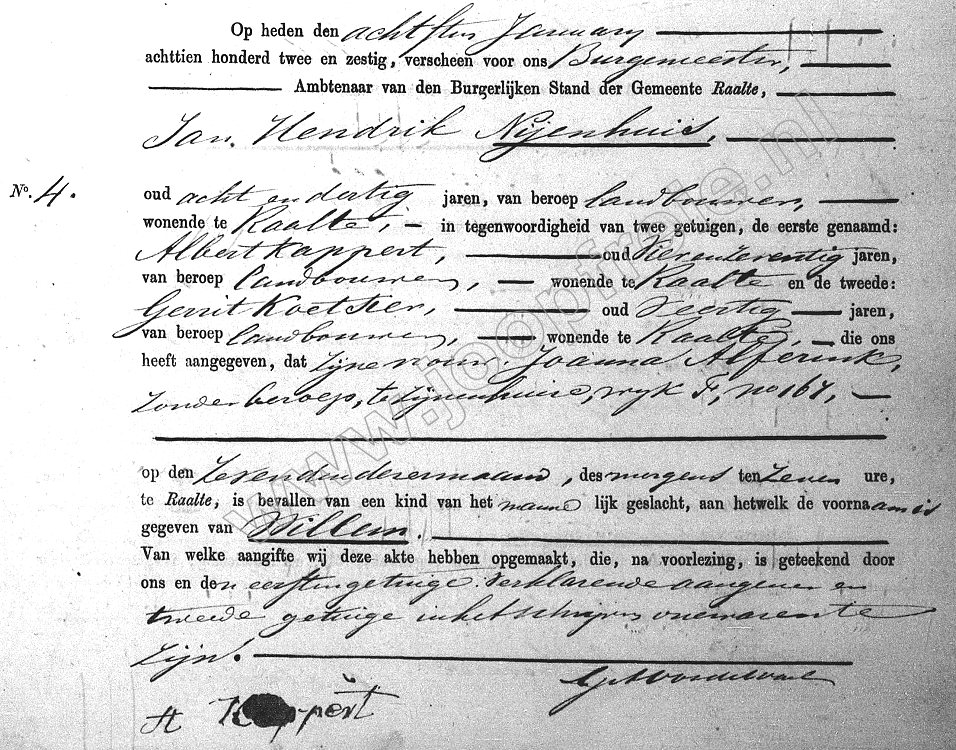 Op heden den achtsten January
achttien honderd twee en zestig, verscheen voor ons Burgemeester,
Ambtenaar van den Burgerlijken Stand der Gemeente Raalte,
Jan Hendrik Nijenhuis,
No. 4.
oud acht en dertig jaren, van beroep landbouwer,
wonende te Raalte, in tegenwoordigheid van twee getuigen, de eerste genaamd:
Albert Kappert, oud Vierenzeventig jaren,
van beroep landbouwer, wonende te Raalte en de tweede:
Gerrit Koetsier, oud Veertig jaren,
van beroep landbouwer, wonende te Raalte, die ons
heeft aangegeven, dat zijne vrouw Joanna Alferink,
zonder beroep, te zijnenhuize, wyk F, no 161,
op den Zevenden dezermaand, des morgens ten Zeven ure,
te Raalte, is bevallen van een kind van het manne lijk geslacht, aan hetwelk de voornaam is
gegeven van Willem.
Van welke aangifte wij deze akte hebben opgemaakt, die, na voorlezing, is geteekend door
ons en den eersten getuige verklarende aangever en
tweede getuige in het schrijven onervaren te
zijn.
A Kappert
www.jcopfrote.nl